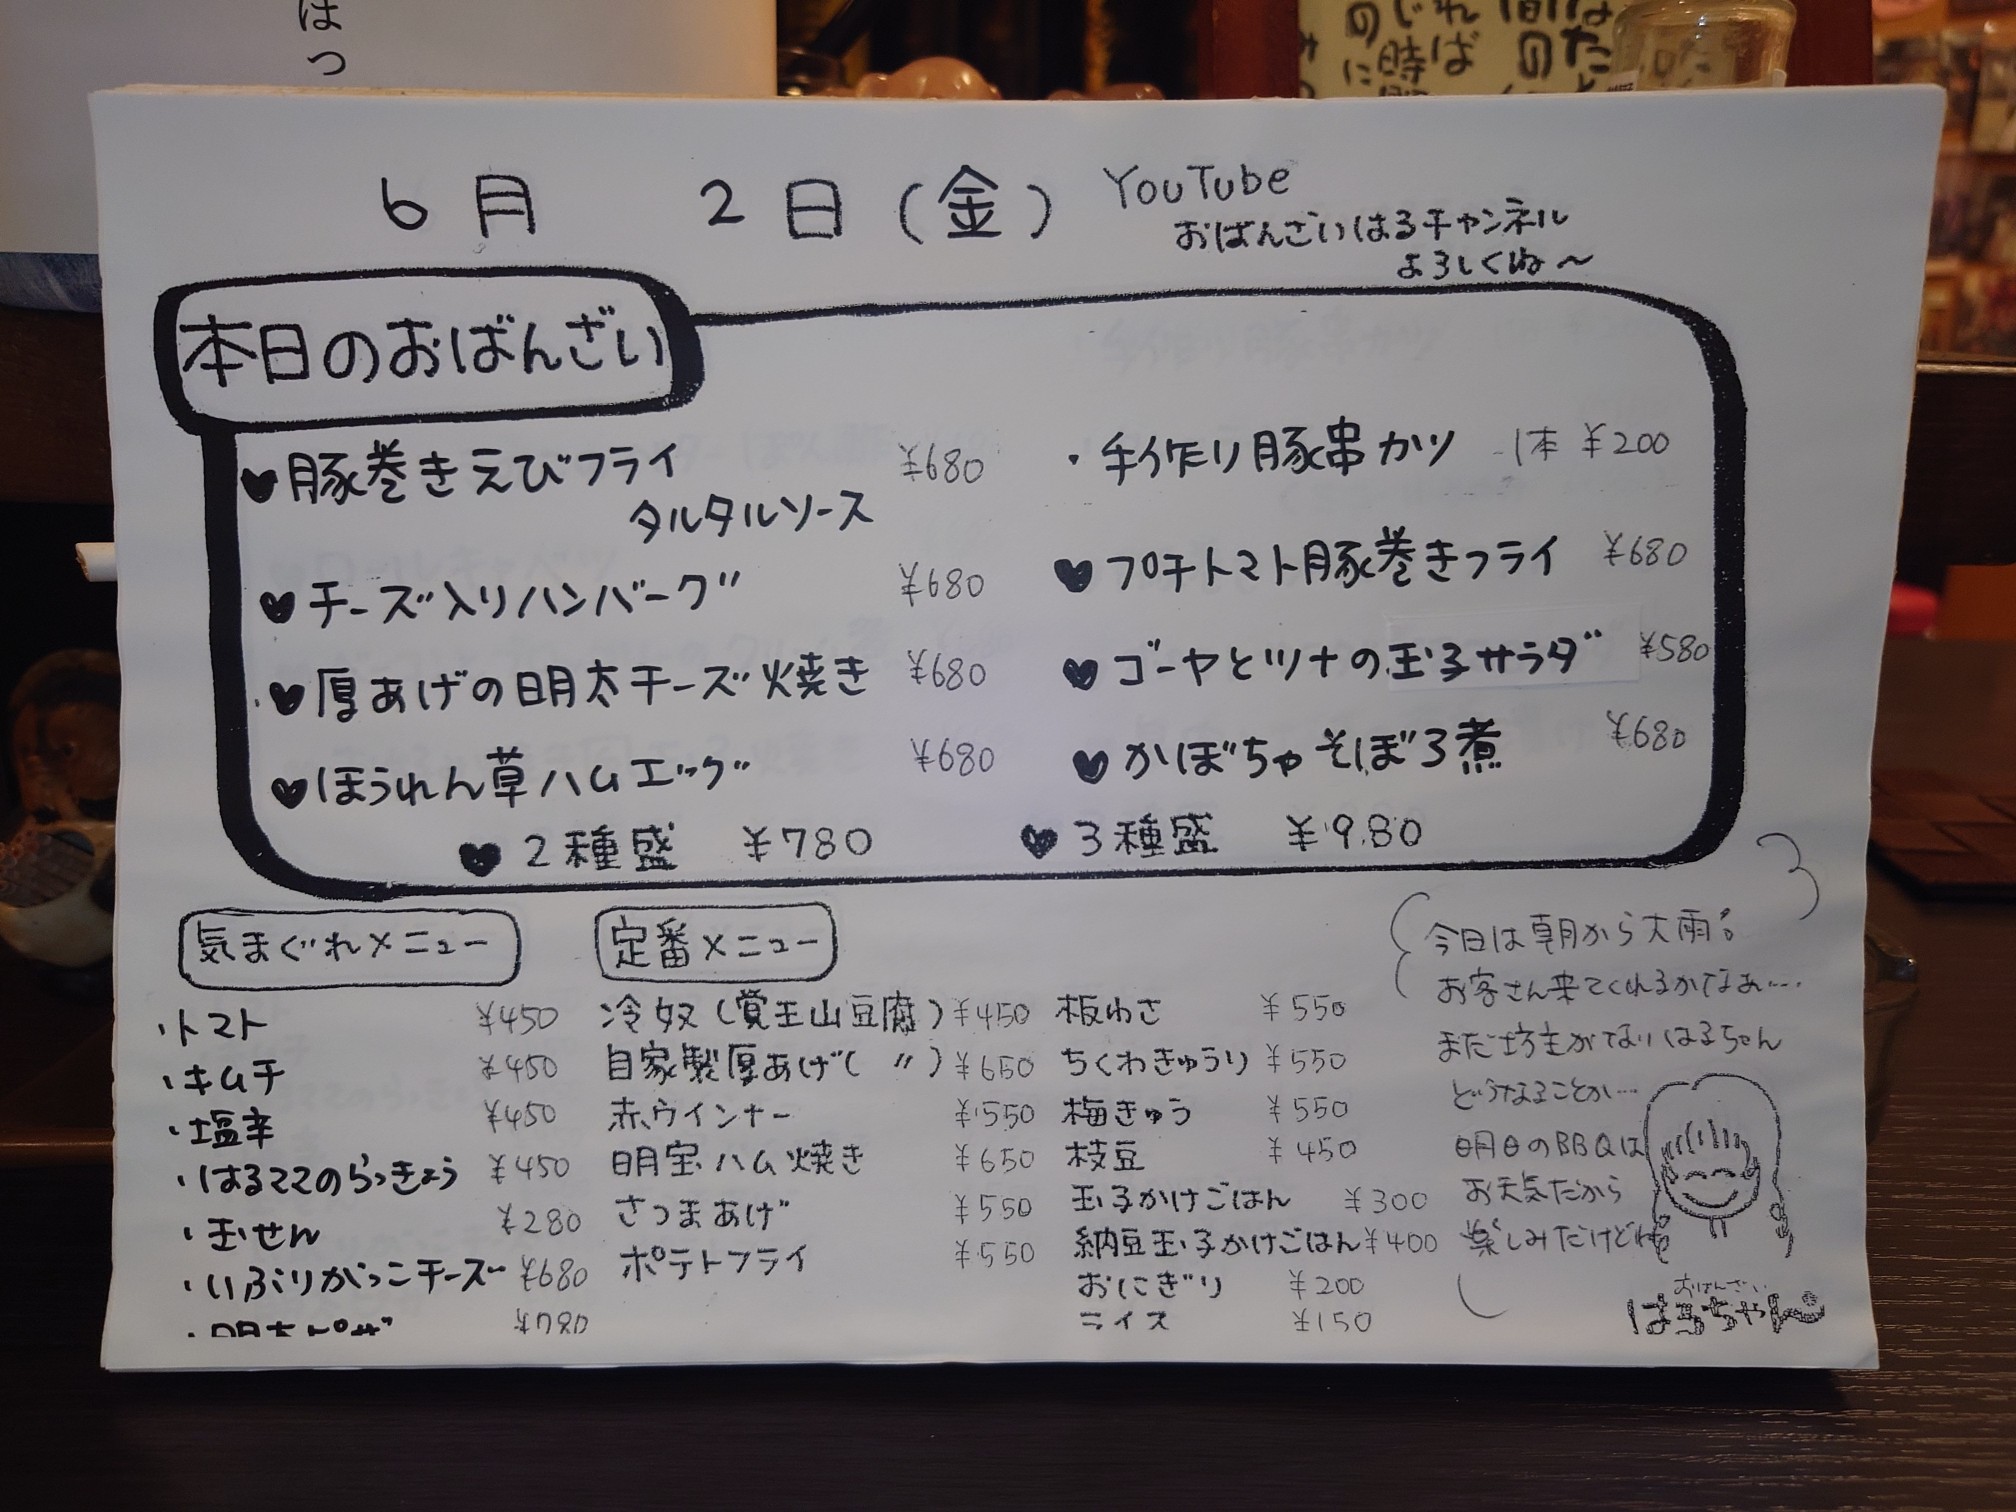 はつ
6月 2日(金)
YouTube
おばんざいはるチャンネル
よろしくね〜
本日のおばんざい
♥豚巻きえびフライ ¥680
タルタルソース
♥チーズ入りハンバーグ ¥680
♥厚あげの明太チーズ焼き ¥680
♥ほうれん草ハムエッグ ¥680
・手作り豚串カツ 1本 ¥200
♥プチトマト豚巻きフライ ¥680
♥ゴーヤとツナの玉子サラダ ¥580
♥かぼちゃそぼろ煮 ¥680
♥2種盛 ¥780
♥3種盛 ¥980
気まぐれメニュー
・トマト ¥450
・キムチ ¥450
・塩辛 ¥450
・はるママのらっきょう ¥450
・玉せん ¥280
・いぶりがっこチーズ ¥680
・明太ピザ ¥780
定番メニュー
冷奴(覚王山豆腐) ¥450
自家製厚あげ(〃) ¥650
赤ウインナー ¥550
明宝ハム焼き ¥650
さつまあげ ¥550
ポテトフライ ¥550
板わさ ¥550
ちくわきゅうり ¥550
梅きゅう ¥550
枝豆 ¥450
玉子かけごはん ¥300
納豆玉子かけごはん ¥400
おにぎり ¥200
ライス ¥150
今日は朝から大雨
お客さん来てくれるかなぁ…
まだ坊主がないはるちゃん
どうなることか…
明日のBBQは
お天気だから
楽しみだけどね
おばんざい
はるちゃん